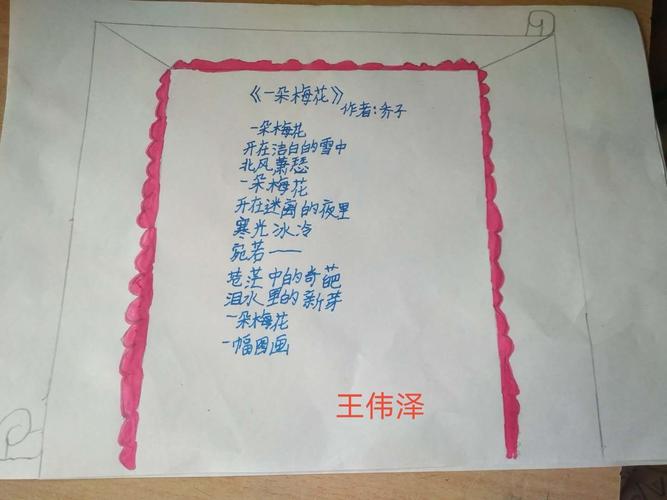 《一朵梅花》
作者:乔子
一朵梅花
开在洁白的雪中
北风萧瑟
一朵梅花
开在迷离的夜里
寒光冰冷
宛若——
苍茫中的奇葩
泪水里的新芽
一朵梅花
一幅图画
王伟泽